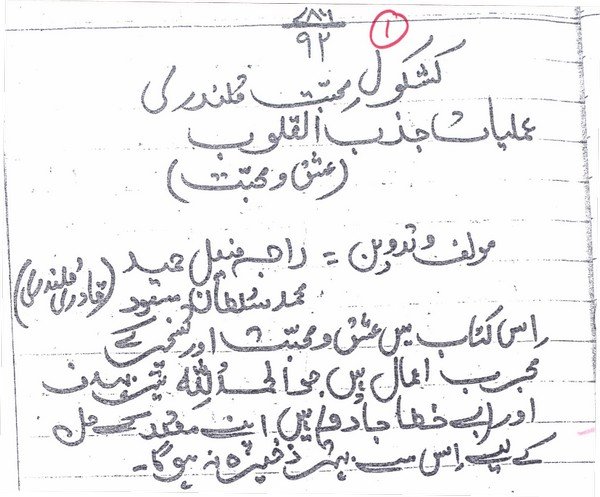 ۷۸۶
۹۲
۱
کشکولِ محبت قلندری
عملیات جذب القلوب
(عشق و محبت)
مولف و تدوین = راجہ فیصل حمید
محمد سُلطان مسعود (قادری قلندری)
اِس کتاب میں عشق و محبت اور تسخیر کے
مجرب اعمال ہیں جو الحمدُ لِلّٰہ تیر بہدف
اور (بے خطا جادو) ہیں اپنے مقصد کے حل
کے لیے اِس سے بہتر ذخیرہ نہ ہوگا۔